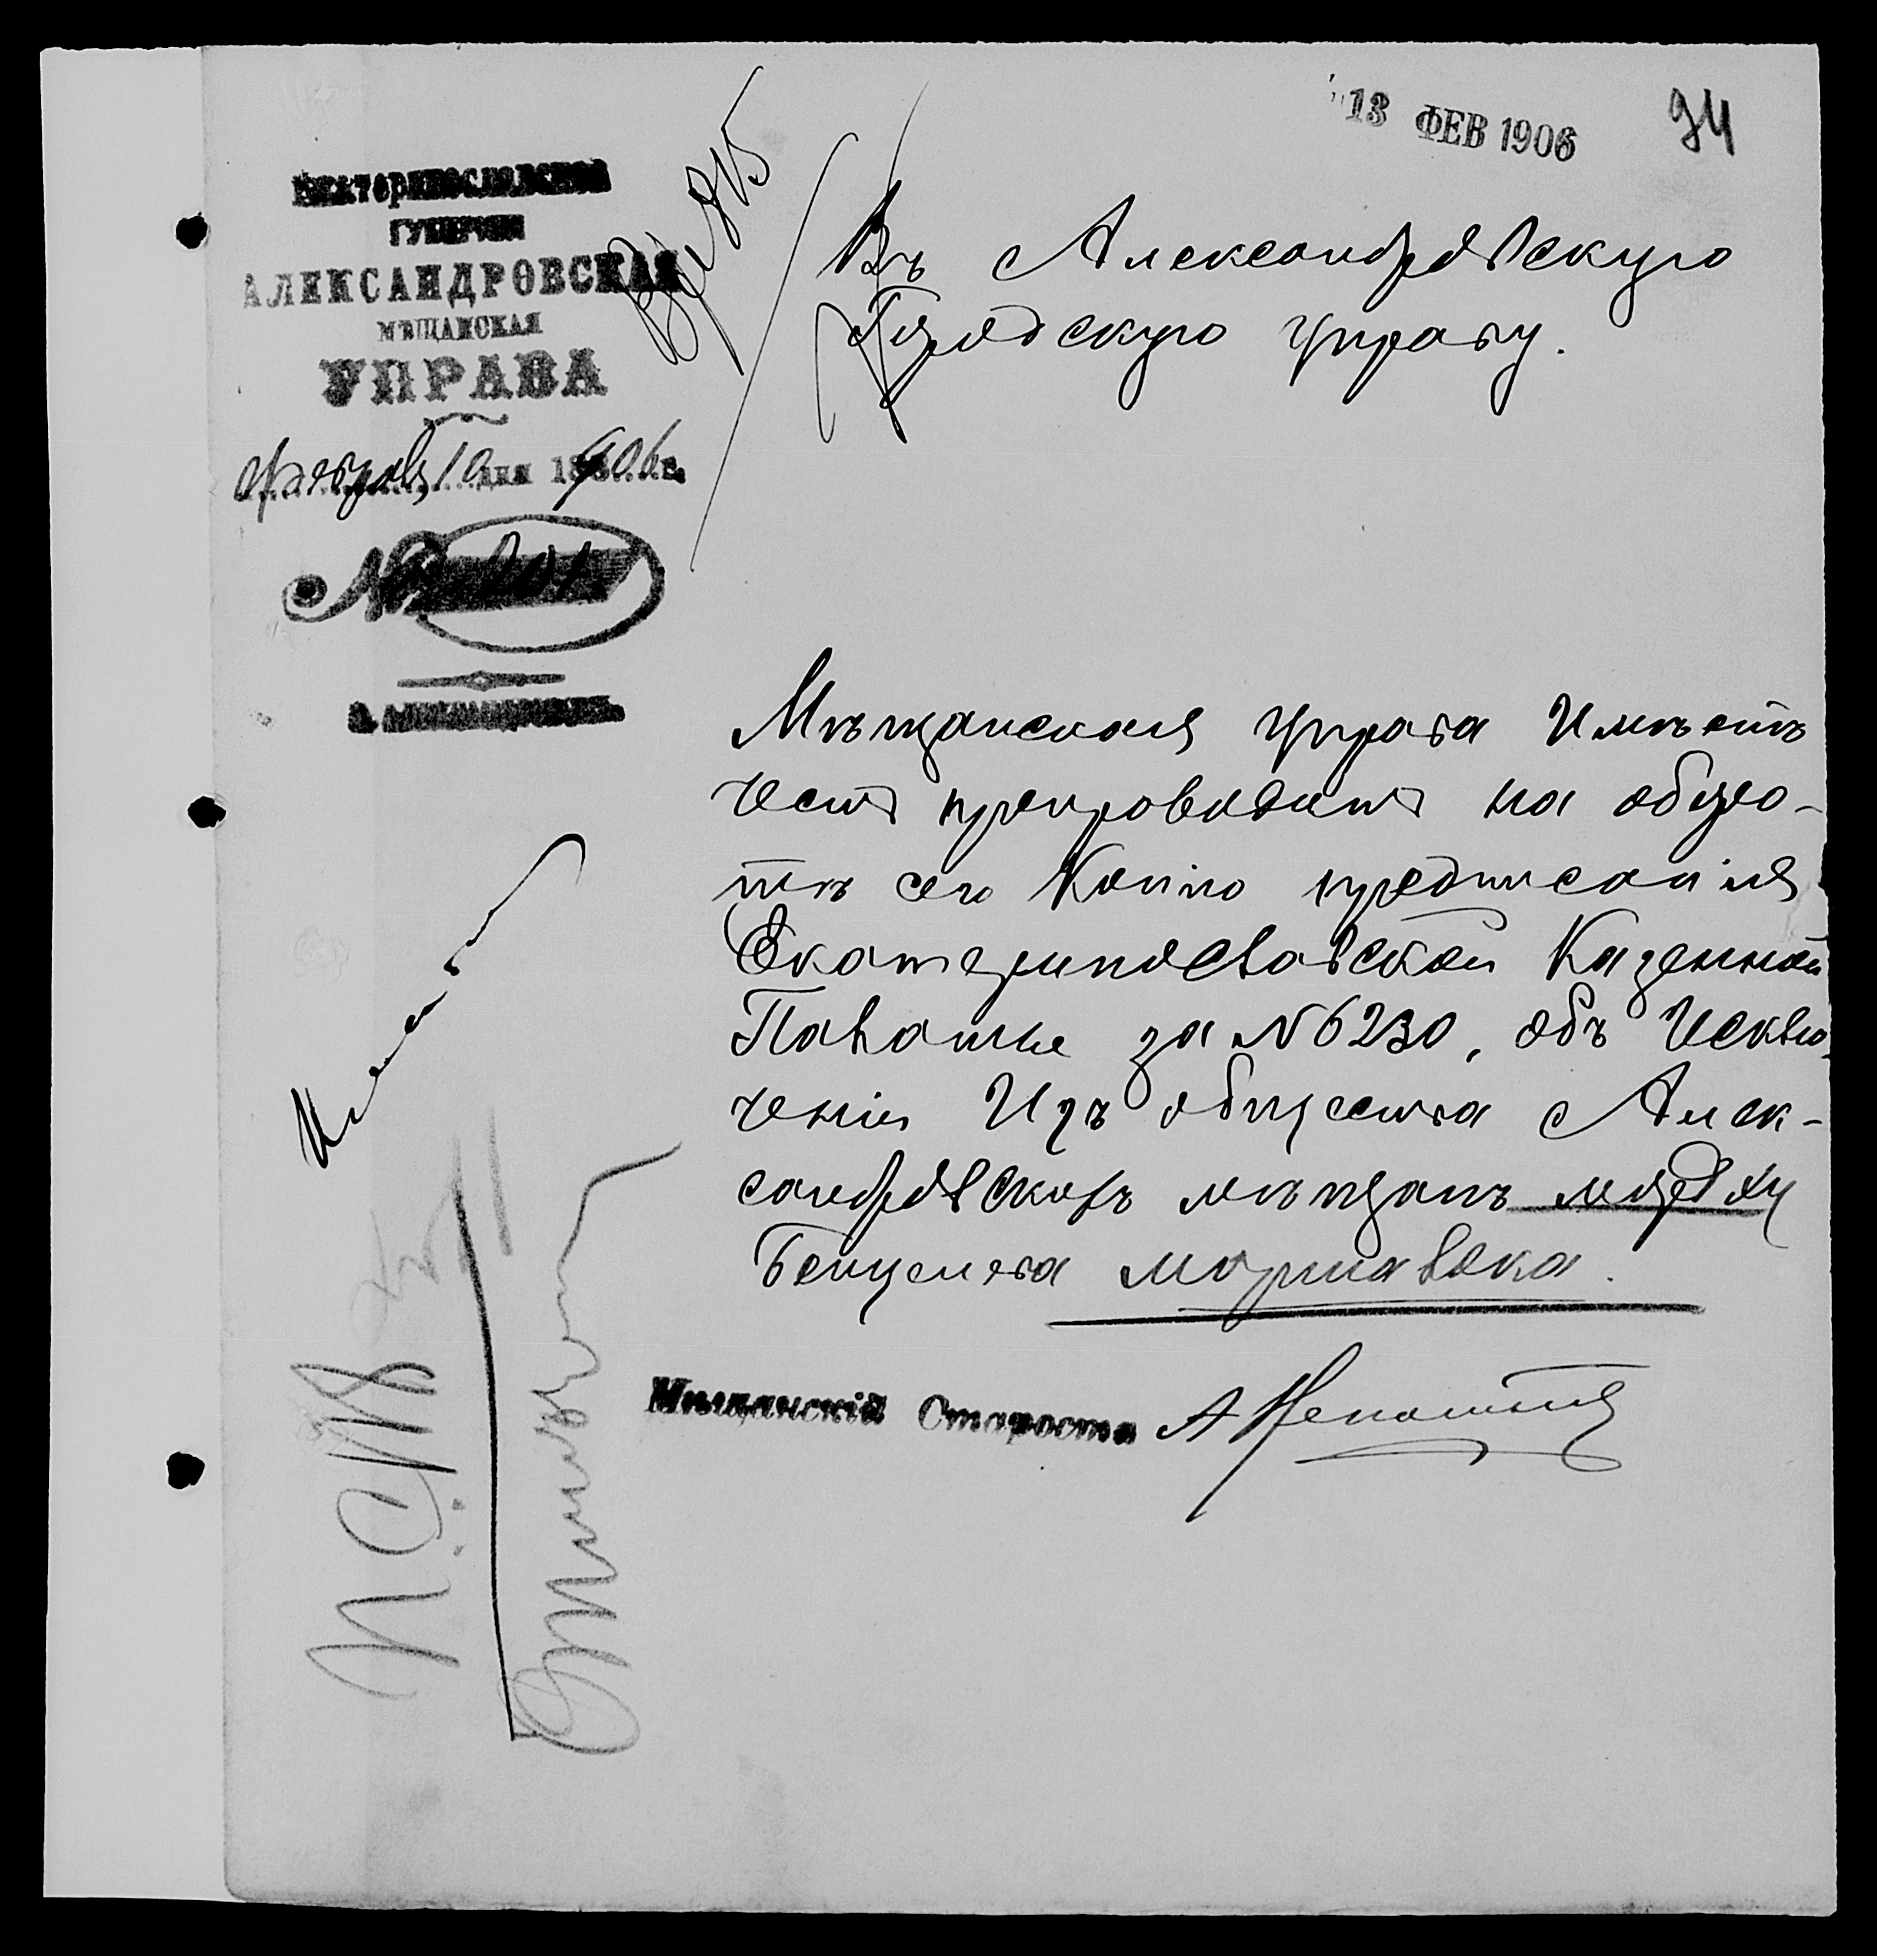 13 ФЕВ 1906
94
Екатеринославской
ГУБЕРНІИ
АЛЕКСАНДРОВСКАЯ
МѢЩАНСКАЯ
УПРАВА
Февраля 10 дня 1906 г.
№ 201
Г. Александровскъ.
Въ Александровскую
Городскую управу.
Мѣщанская управа Имѣетъ
честь препроводить на оборо-
тѣ сего Копію предписанія
Екатеринославской Казенной
Палаты за № 6230, объ Исклю-
ченіи Изъ общества Алек-
сандровскихъ мѣщанъ
Мѣщанскій Староста А